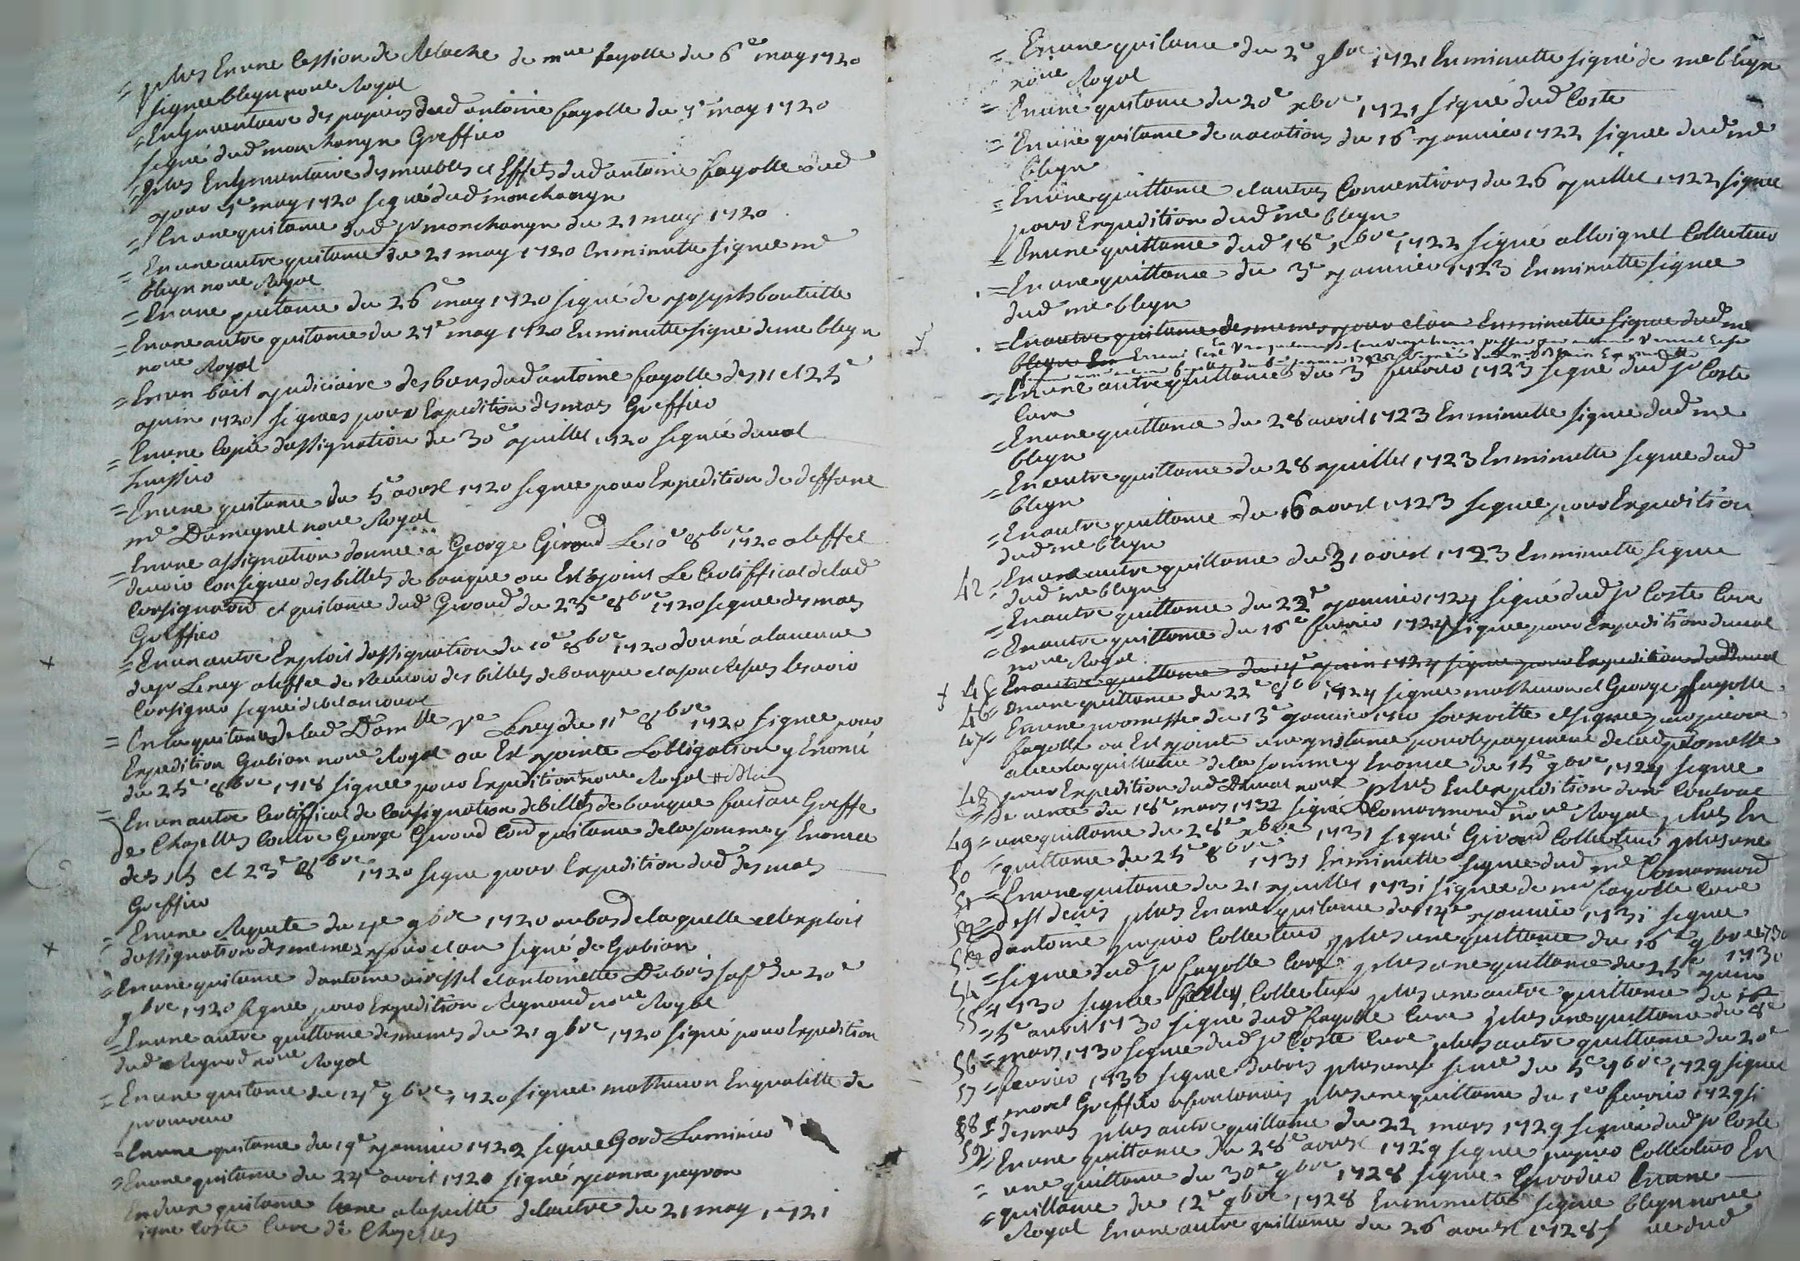 = plus En une Cession de Relache de mre fayolle du 6e may 1720
signee bleyn nore Royal
= En Linventaire des papiers dud antoine fayolle du 7e may 1720
signé dud monchanyn Greffier
= plus En Linventaire des meubles et Effets dud antoine fayolle dud
jour 7e may 1720 signé dud monchanyn
= En une quitance dud sr monchanyn du 21 may 1720
= En une autre quitance du 21 may 1720 En minutte signee me
bleyn nore Royal
= En une quitance du 26e may 1720 signé de joseph
= En une autre quitance du 27e may 1720 En minutte signé dud me bleyn
nore Royal
= En un bail judiciaire des biens dud antoine fayolle des 11 et 25e
juin 1720 signees pour Expedition des mas Greffier
= En une Copie dassignation du 30e juillet 1720 signée duval
huissier
= En une quitance du 5e aoust 1720 signee pour Expedition de deffunt
me Dumeynet nore Royal
= En une assignation donnee a George Giroud Le 10e 8bre 1720 aleffet
de voir Consigner des billets de banque ou Est joint Le Certifficat de lad
Consignation et quitance dud Giroud du 25e 8bre 1720 signee des mas
Greffier
= En un autre Exploit dassignation du 10e 8bre 1720 donné a la veuve
du sr Leney aleffet de Recevoir des billets de banque et a son Refus les voir
Consigner signé
= En la quitance de lad Damlle Ve Leney du 11e 8bre 1720 signee pour
Expedition Gubian nore Royal ou Est jointe Lobligation y Enoncé
du 25e 8bre 1718 signée pour Expedition nore Royal
= En un autre Certifficat de Consignation de billets de banque fait au Greffe
de Chazelles Contre George Giroud Cond quitance de la somme y Enoncée
des 15 et 23e 8bre 1720 signe pour Expedition dud des mas
Greffier
= En une Requete du 4e 9bre 1720 au bas de laquelle est lexploit
dassignation des memes jour et an signé de Gubian
= En une quitance dantoine et antoinette Dubois sa fe du 20e
9bre 1720 signee pour Expedition Reynaud nore Royal
= En une autre quittance des memes du 21 9bre 1720 signé pour Expedition
dud Reynod nore Royal
= En une quitance du 14e 9bre 1720 signee mathevon En qualitte de
procureur
= En une quitance du 19e janvier 1722 signee Gord Luminier
= En une quitance du 24e avril 1720 signé jeanne peyron
En deux quitance Lune a la suitte de lautre du 21 may 1721
signe Coste Cure de Chazelles
= En une quitance du 2e 9bre 1721 En minutte signé de me bleyn
nore Royal
= En une quitance du 20e xbre 1721 signé dud Coste
= En une quitance de vacations du 16e janvier 1722 signee dud me
bleyn
= En une quittance et autres Conventions du 26 juillet 1722 signee
pour Expedition dud me bleyn
= En une quittance dud 18e xbre 1722 signé alloignet Collecteur
= En une quittance du 3e janvier 1723 En minutte signee
dud me bleyn
= En autre quitance des memes jour et an En minutte signee dud me
bleyn
= En une autre quittance du 3e fevrier 1723 signé dud sr Coste
Cure
= En une quittance du 28 avril 1723 En minutte signee dud me
bleyn
= En autre quittance du 28 juillet 1723 En minutte signee dud
bleyn
= En autre quittance du 16 aoust 1723 signee pour Expedition
dud me bleyn
42 = En une autre quittance du 31 aoust 1723 En minutte signee
dud me bleyn
= En autre quittance du 22e janvier 1724 signé dud sr Coste Cure
= En autre quittance du 16e fevrier 1724 signee pour Expedition duval
nore Royal
+ 45 En autre quittance du 14e juin 1724 signee pour Expedition dud Duval
46 = En une quittance du 22e 8bre 1724 signee mathevon et George fayolle
47 = En une promesse du 13e janvier 1710 souscritte et signee par pierre
fayolle ou Est joint une quitance pour le payement de lad promesse
avec la quittance de la somme y Enoncee du 15e 9bre 1724 signee
48 pour Expedition dud Duval nore plus En lexpedition dun Contrat
de vente du 18e mars 1732 signee Commarmond nore Royal plus En
49 = une quittance du 28e xbre 1731 signé Giroud Collecteur plus une
50 = quittance du 25e 8bre 1731 En minutte signee dud me Commarmond
51 = En une quitance du 21 juillet 1731 signee de me fayolle Cure
52 = de st denis plus En une quitance du 14e janvier 1731 signee
53 dantoine Collecteur plus une quittance du 16e 9bre 1730
54 = signee dud sr fayolle Cure plus une quittance du 25e juin
55 = 1730 signee felley Collecteur plus une autre quittance du
= 5e avril 1730 signé dud fayolle Cure plus une quittance du 8e
56 = mars 1730 signee dud sr Coste Cure plus autre quittance du 20e
57 = fevrier 1730 signee dubois plus une du 5e 9bre 1729 signee
morel Greffier plus une quittance du 1er fevrier 1729 si
58 = des mas plus autre quittance du 22 mars 1729 signee dud sr Coste
59 En une quittance du 28e aoust 1729 signee Collecteur En
= une quittance du 30e 9bre 1728 signee Girodier En une
= quittance du 12e 9bre 1728 En minutte signee bleyn nore
Royal En une autre quittance du 26 aoust 1728 dud